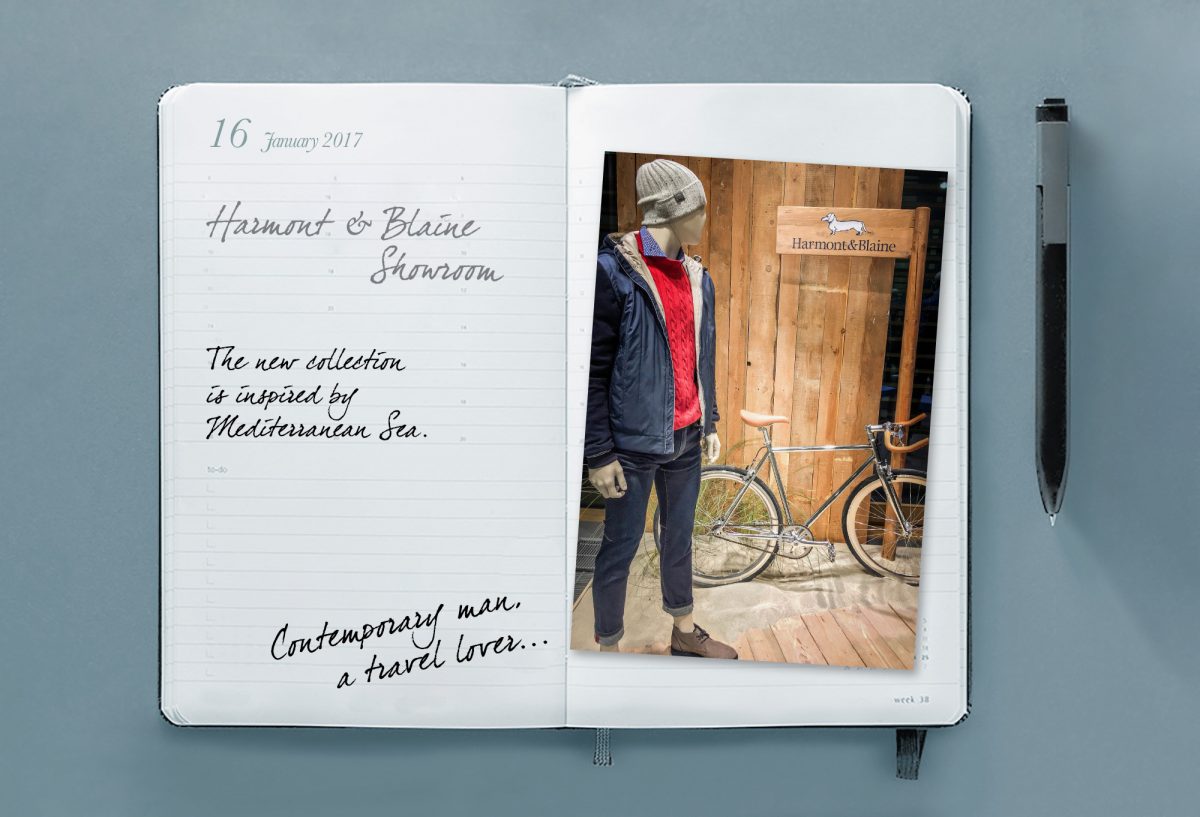 16 January 2017
Harmont & Blaine
Showroom
The new collection
is inspired by
Mediterranean Sea.
to-do
Contemporary man,
a travel lover...
Harmont&Blaine
week 38